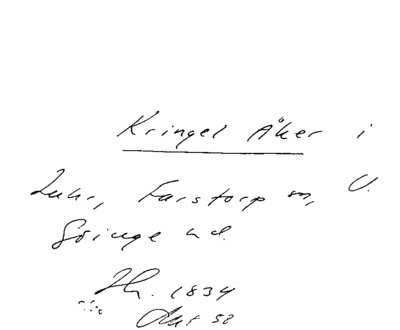 Kringel Åker i
Luhr, Farstorp sn, V.
Göinge hd.
1834